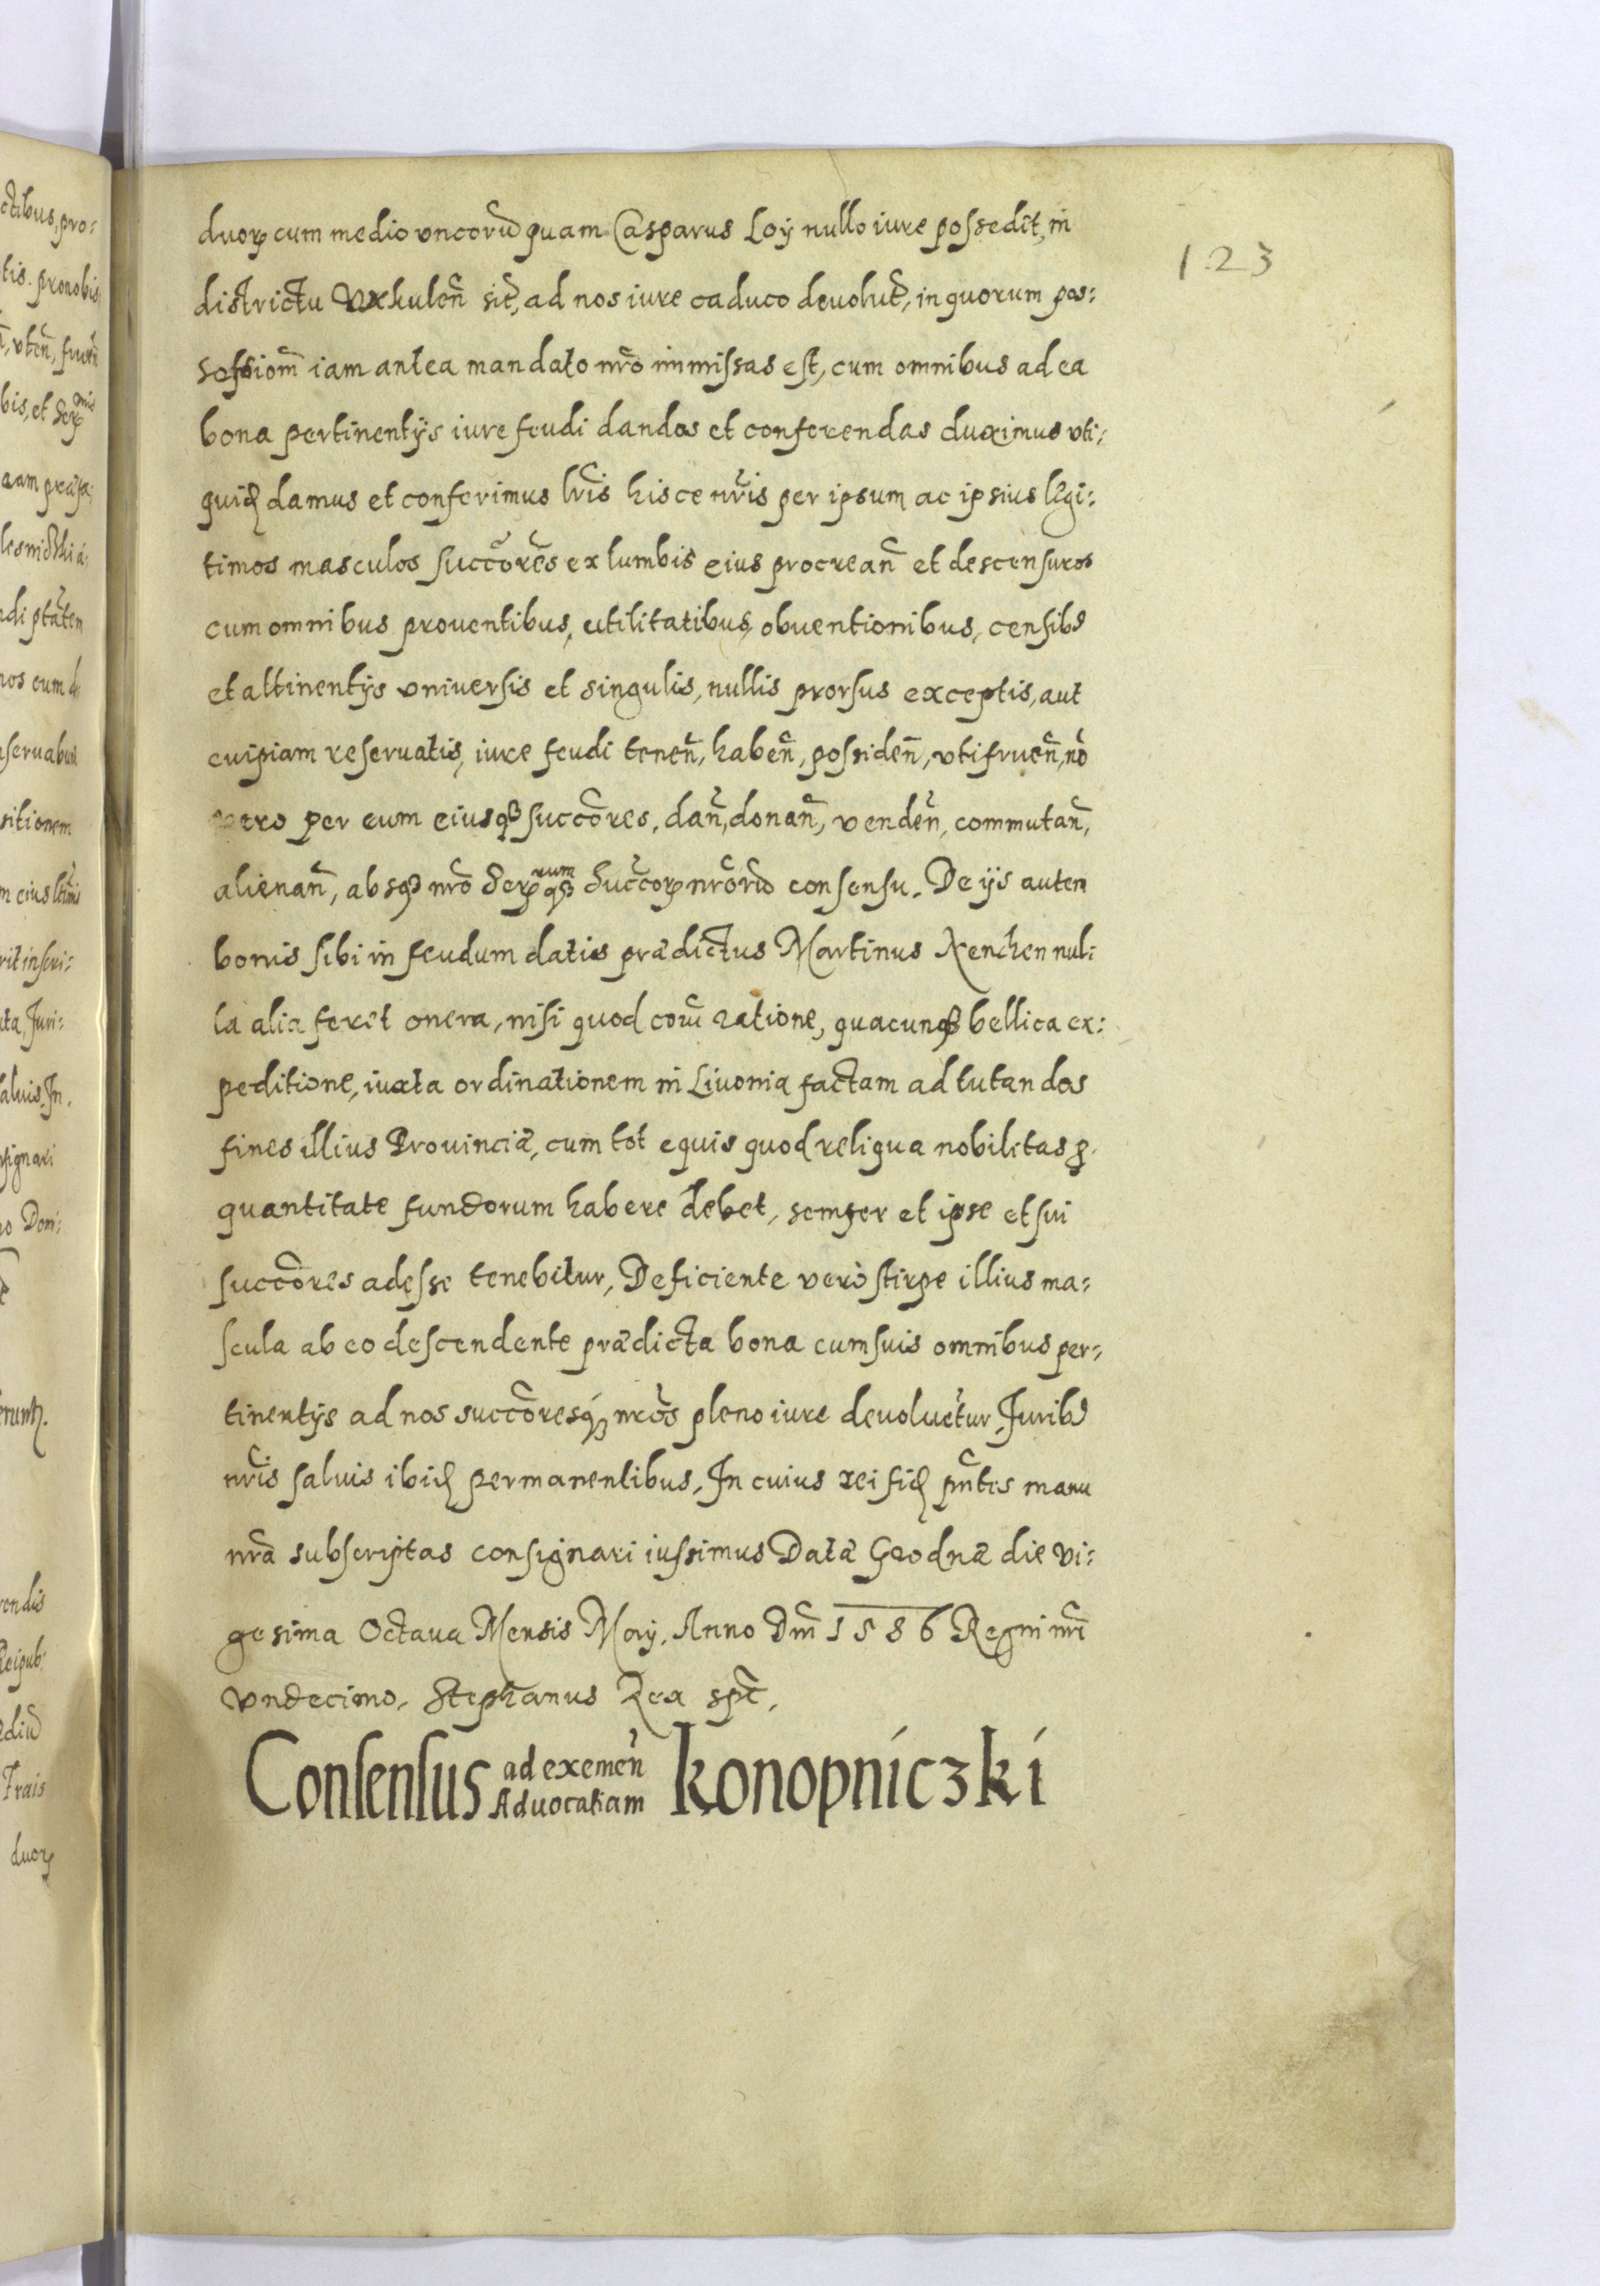 duorꝝ cum medio vncorũ quam Casparus Loÿ nullo iure possedit, in
123
districtu Vxkuleñ sit, ad nos iure caduco deuolut̃, in quorum pos:
sessiom̃ iam antea mandato nr̃o immissas est, cum omnibus ad ea
bona pertinentÿs iure feudi dandas et conferendas duximus vti:
quidem damus et conferimus lr̃is hisce nr̃is per ipsum ac ipsius legi:
timos masculos succõres ex lumbis eius procreañ et descensuros
cum omnibus prouentibus, utilitatibus, obuentionibus, censibꝰ
et attinentÿs vniuersis et singulis, nullis prorsus exceptis, aut
cuipiam reseruatis, iure feudi teneñ, habeñ, possideñ, vtifrueñ, nõ
vero per eum eiusqꝫ succõres, dañ, donañ, vendeñ, commutañ,
alienañ, absqꝫ nr̃o Serꝝ rum qꝫ Succ̃orꝝ nr̃orũ consensu. De ijs autem
bonis sibi in feudum datis prædictus Martinus Xenchen nul:
la alia feret onera, nisi quod com̃ ratione, quacunqꝫ bellica ex:
peditione, iuxta ordinationem in Liuonia factam ad tutandos
fines illius Prouinciæ, cum tot equis quod reliqua nobilitas ꝓ
quantitate fundorum habere debet, semper et ipse et sui
succõres adesse tenebitur, Deficiente verò stirpe illius ma:
scula ab eo descendente prædicta bona cum suis omnibus per:
tinentÿs ad nos succõresqꝫ nr̃os pleno iure deuoluẽtur, Juribꝰ
nr̃is saluis ibidem permanentibus, In cuius rei fidem pñtes manu
nr̃a subscriptas consignari iussimus Datæ Grodnæ die vi:
gesima Octaua Mensis Maÿ, Anno Dm̃ 1586 Regni nr̃i
vndecimo, Stephanus Rex spt̃,
Consensus ad exemeñ Aduocatiam Konopniczki